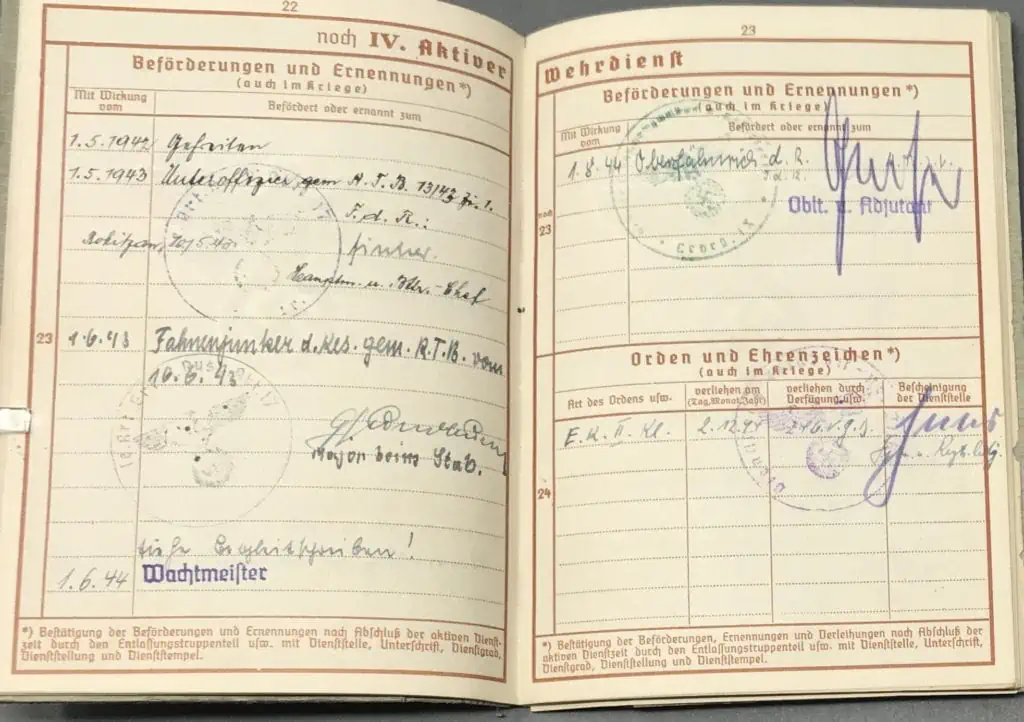 22
noch IV. Aktiver
Beförderungen und Ernennungen*)
(auch im Kriege)
Mit Wirkung vom
Befördert oder ernannt zum
1.5.1942 Gefreiten
1.5.1943 Unteroffizier gem. 13/43
T. d. R.:
Rokitzan, 10/5.43.
Hauptm. u. Bttr.-Chef
23
1.6.43 Fahnenjunker d. Res. gem. R.T.B. vom
10.6.43
Major beim Stab.
siehe Begleitschreiben!
1.6.44 Wachtmeister
*) Bestätigung der Beförderungen und Ernennungen nach Abschluß der aktiven Dienst-
zeit durch den Entlassungstruppenteil usw. mit Dienststelle, Unterschrift, Dienstgrad,
Dienststellung und Dienststempel.
23
Wehrdienst
Beförderungen und Ernennungen*)
(auch im Kriege)
Mit Wirkung vom
Befördert oder ernannt zum
1.8.44 Oberfähnrich d. R.
noch 23
Oblt. u. Adjutant
Orden und Ehrenzeichen*)
(auch im Kriege)
Art des Ordens usw.
verliehen am
(Tag, Monat, Jahr)
verliehen durch
Verfügung usw.
Bescheinigung
der Dienststelle
E.K. II. Kl. 2.12.44
24
*) Bestätigung der Beförderungen, Ernennungen und Verleihungen nach Abschluß der
aktiven Dienstzeit durch den Entlassungstruppenteil usw. mit Dienststelle, Unterschrift,
Dienstgrad, Dienststellung und Dienststempel.